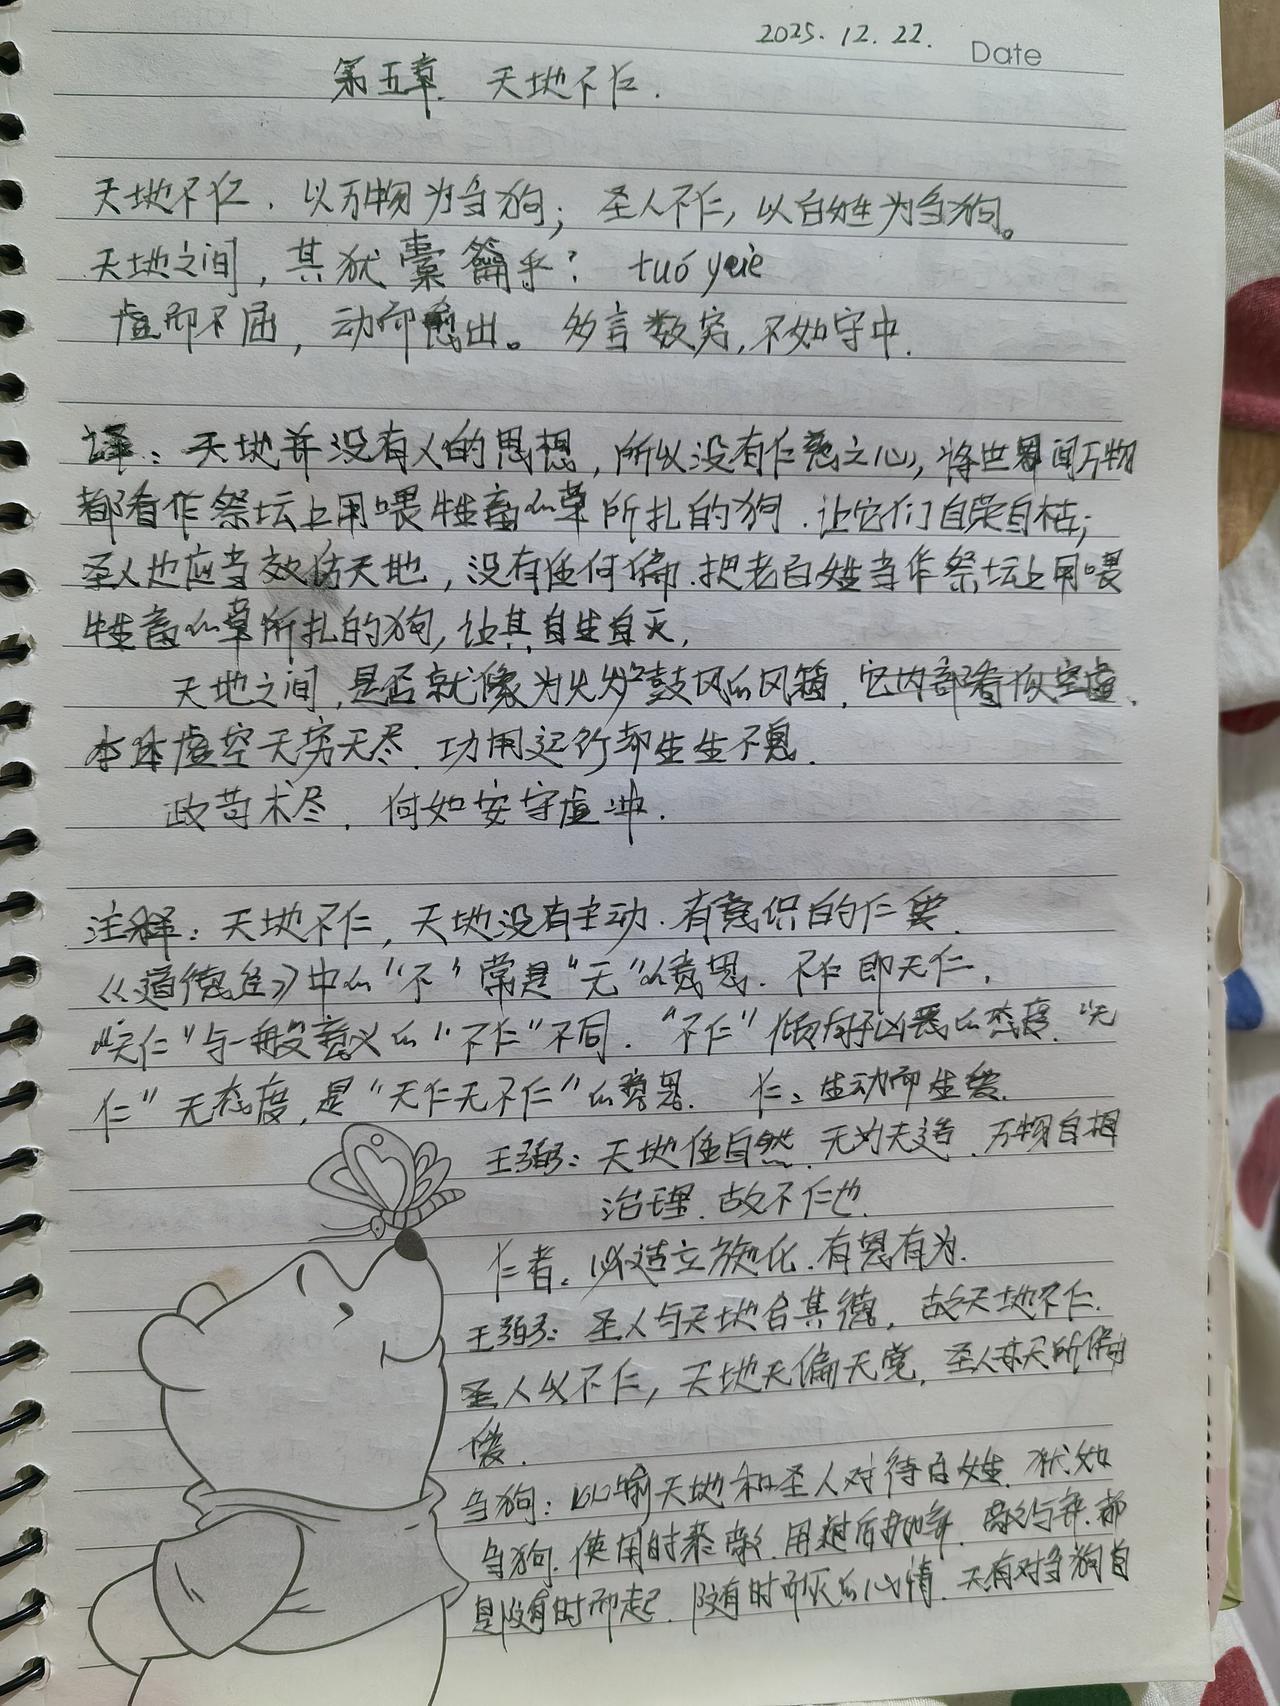 2025.12.22.
Date
第五章. 天地不仁.
天地不仁.以万物为刍狗;圣人不仁,以百姓为刍狗。
天地之间,其犹橐籥乎?tuó yuè
虚而不屈,动而愈出。多言数穷,不如守中.
译:天地并没有人的思想,所以没有仁慈之心,将世界间万物
都看作祭坛上用喂牲畜的草所扎的狗.让它们自荣自枯;
圣人也应当效仿天地,没有任何偏.把老百姓当作祭坛上用喂
牲畜的草所扎的狗,让其自生自灭,
天地之间,是否就像为火炉鼓风的风箱,它内部看似空虚.
本体虚空无穷无尽.功用运行却生生不息.
政苛术尽.何如安守虚冲.
注释:天地不仁,天地没有主动.有意识的仁爱.
《道德经》中的"不"常是"无"的意思.不仁即无仁,
"无仁"与一般意义的"不仁"不同."不仁"倾向于凶恶的态度."无
仁"无态度,是"无仁无不仁"的意思. 仁:生动而生爱.
王弼:天地任自然.无为无造.万物自相
治理.故不仁也.
仁者:必造立施化.有恩有为.
王弼:圣人与天地合其德,故天地不仁.
圣人以不仁,天地无偏无党.圣人亦无所偏
爱.
刍狗:比喻天地和圣人对待百姓.犹如
刍狗.使用时 用过后 与弃.都
是没有时而起.没有时而 的心情.无有对刍狗自